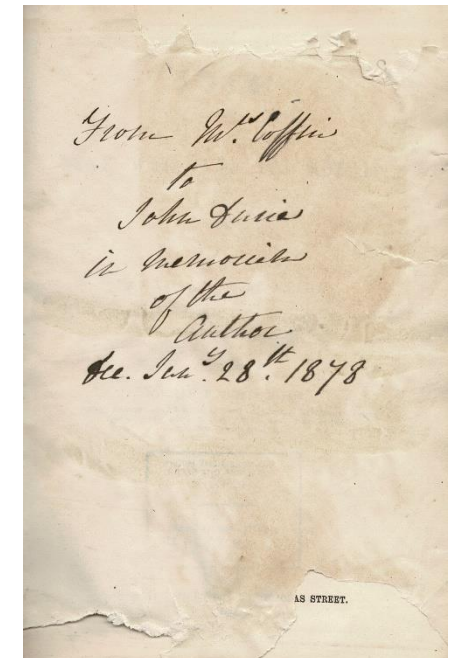 From Mrs. Coffin
to
John Durie
in memoriam
of the
Author
Dec. Jany. 28th. 1878
AS STREET.